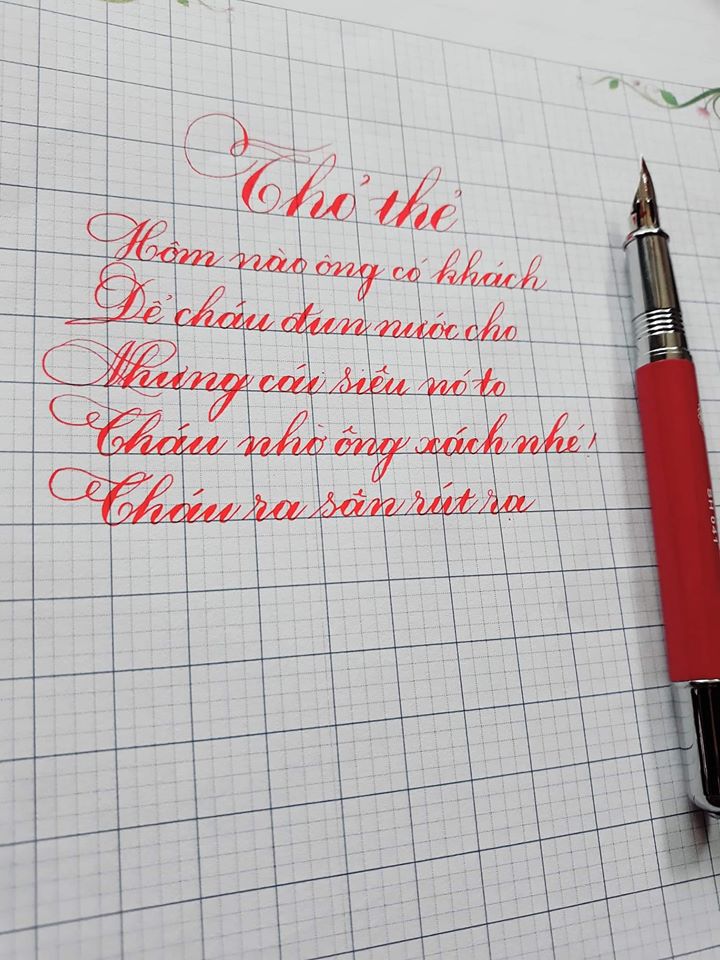 Thỏ thẻ
Hôm nào ông có khách
Để cháu đun nước cho
Nhưng cái siêu nó to
Cháu nhờ ông xách nhé!
Cháu ra sân rút rạ
SH 041